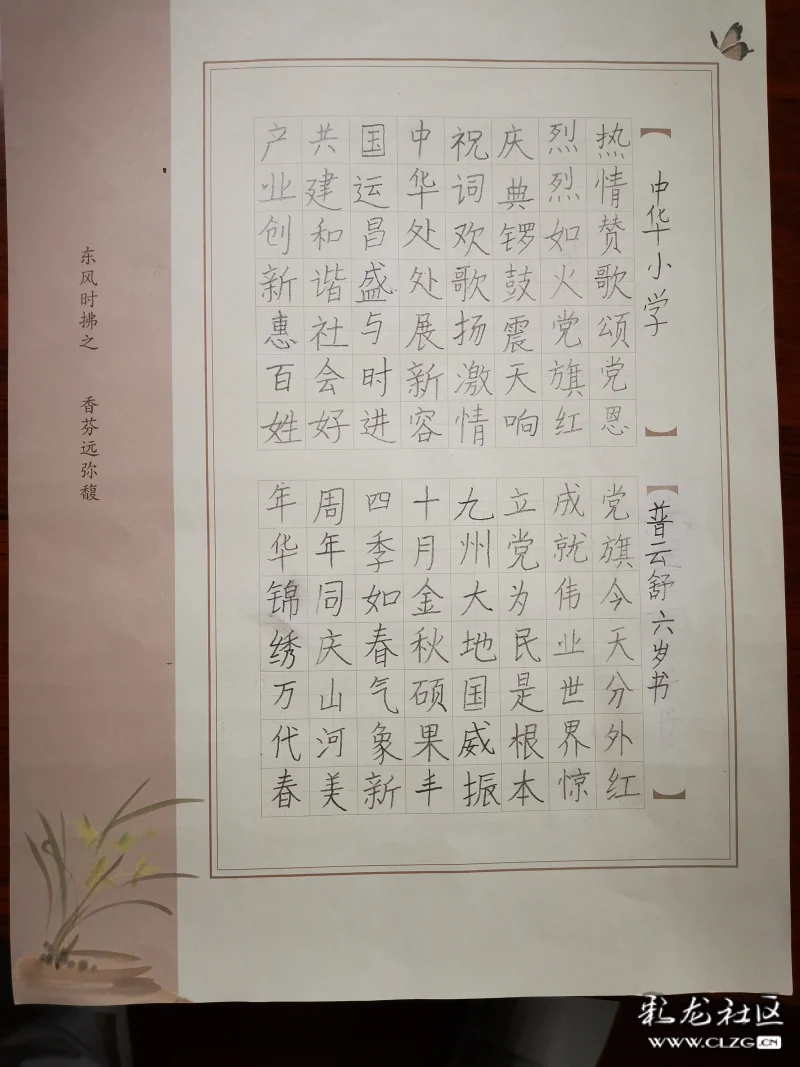 【中华小学】
热情赞歌颂党恩
烈烈如火党旗红
庆典锣鼓震天响
祝词欢歌扬激情
中华处处展新容
国运昌盛与时进
共建和谐社会好
产业创新惠百姓
【普云舒六岁书】
党旗今天分外红
成就伟业世界惊
立党为民是根本
九州大地国威振
十月金秋硕果丰
四季如春气象新
周年同庆山河美
年华锦绣万代春
东风时拂之 香芬远弥馥
彩龙社区
www.CLZG.CN